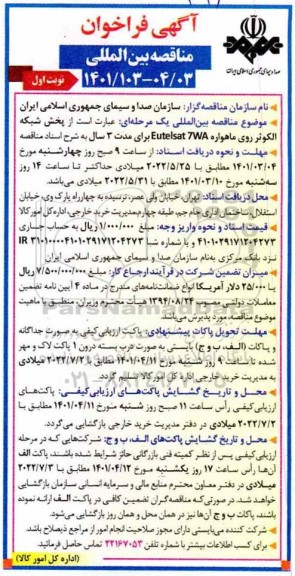 آگهی فراخوان
مناقصه بین المللی
۱۴۰۱/۱۰۳-۰۴/۰۳
نوبت اول
صدا و سیمای جمهوری اسلامی ایران
نام سازمان مناقصه‌گزار: سازمان صدا و سیمای جمهوری اسلامی ایران
موضوع مناقصه بین‌المللی یک مرحله‌ای: عبارت است از پخش شبکه
الکوثر روی ماهواره Eutelsat 7WA برای مدت ۳ سال به شرح اسناد مناقصه
مهلت و نحوه دریافت اسناد: از ساعت ۹ صبح روز چهارشنبه مورخ
۱۴۰۱/۰۳/۰۴ مطابق با ۲۰۲۲/۵/۲۵ میلادی حداکثر تا ساعت ۱۴ روز
سه‌شنبه مورخ ۱۴۰۱/۰۳/۱۰ مطابق با ۲۰۲۲/۵/۳۱ میلادی می‌باشد.
محل دریافت اسناد: تهران، خیابان ولی عصر، نرسیده به چهارراه پارک وی، خیابان
استقلال، ساختمان اداری جام جم، طبقه چهارم، مدیریت خرید خارجی، اداره کل امور کالا
قیمت اسناد و نحوه واریز وجه: مبلغ ۱/۰۰۰/۰۰۰ ریال به حساب جاری
۴۱۰۱۰۲۹۱۷۱۲۰۴۲۷۳ و یا شماره شبا IR
نزد بانک مرکزی به‌نام سازمان صدا و سیمای جمهوری اسلامی ایران
میزان تضمین شرکت در فرآیند ارجاع کار: مبلغ ۷/۵۰۰/۰۰۰/۰۰۰ ریال
یا ۲۵/۰۰۰ دلار آمریکا انواع ضمانت‌نامه‌های مندرج در ماده ۴ آیین نامه تضمین
معاملات دولتی مصوب ۱۳۹۴/۰۸/۲۴ هیأت محترم وزیران، منطبق با ماهیت
موضوع مناقصه، مورد پذیرش می‌باشد.
مهلت تحویل پاکات پیشنهادی: پاکت ارزیابی کیفی به صورت جداگانه
و پاکات (الف، ب و ج) بایستی به صورت درب بسته درون ۱ پاکت لاک و مهر
شده تا ساعت ۹ روز شنبه مورخ ۱۴۰۱/۰۴/۱۱ مطابق با ۲۰۲۲/۷/۲ میلادی
به مدیریت خرید خارجی اداره کل امور کالا تسلیم گردد.
محل و تاریخ گشایش پاکت‌های ارزیابی‌کیفی: پاکت‌های
ارزیابی کیفی رأس ساعت ۱۱ صبح روز شنبه مورخ ۱۴۰۱/۰۴/۱۱ مطابق با
۲۰۲۲/۷/۲ میلادی در دفتر مدیریت خرید خارجی بازگشایی می‌گردد.
محل و تاریخ گشایش پاکت‌های الف، ب و ج: شرکت‌هایی که در مرحله
ارزیابی کیفی پس از نظر کمیته فنی بازرگانی حائز شرایط شده باشند، پاکت الف
آن‌ها رأس ساعت ۱۷ روز یکشنبه مورخ ۱۴۰۱/۰۴/۱۲ مطابق با ۲۰۲۲/۷/۳
میلادی در دفتر معاون محترم منابع مالی و سرمایه انسانی سازمان بازگشایی
خواهد شد. در صورتی که مناقصه‌گران تضمین کافی در پاکت الف ارائه نموده
باشند، پاکات ب و ج آن‌ها نیز در همان محل و همان روز بازگشایی می‌شود.
شرکت کننده می‌بایستی دارای مجوز صلاحیت انجام امور از مراجع ذیصلاح باشد.
برای کسب اطلاعات بیشتر با شماره تلفن ۲۲۱۶۷۰۵۳ تماس حاصل فرمائید.
(اداره کل امور کالا)